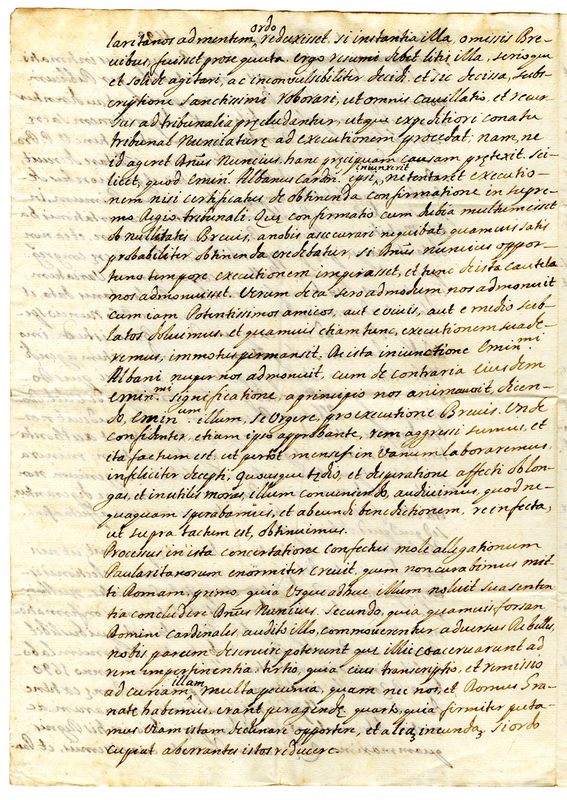 laritanos ad mentem ordo reduxisset, si instantia illa, omissis Bre-
vibus, fuisset prosequuta. Ergo resumi debet litis illa, serioque
et solide agitari, ac inconvulsibiliter decidi. et sic decissa, Subs-
criptione Sanctissimi roborari, ut omnis cauillatio, et recur-
sus ad tribunalia precludantur, utque expeditiori conatu
tribunal Nunciaturæ ad executionem procedat; nam, ne
id ageret Dnus Nuncius, hanc precipuam causam pretexit. Sci-
licet, quod Emin. Albanus Cardin. ipsi iniunxerit, ne tentaret executio-
nem nisi certificatus de obtinenda confirmatione in supre-
mo Regio tribunali. Que confirmatio cum dubia multum esset
ob nullitates Brevis, a nobis assecurari nequibat, quamuis satis
probabiliter obtinenda credebatur, si Dnus nuncius oppor-
tuno tempore executionem, et tunc de ista cautela
nos admonuisset. Verum de ea sero admodum nos admonuit
cum iam Potentissimos amicos, aut e viuis, aut e medio sub-
latos doluimus. et quamuis etiam tunc, executionem suade-
remus, immotus permansit. De ista iniunctione Eminmi
Albani nuper nos admonuit, cum de contraria eiusdem
Eminmi significatione, a principio nos animauerit, dicen-
do, Eminum illum, se Urgere, pro executione Brevis. Unde
confidenter, etiam ipso approbante, rem aggressi sumus, et
ita factum est, ut per tot menses in vanum laboraremus,
infeliciter decepti, Quousque tedio, et desperatione affecti ob lon-
gas, et inutiles moras, illum conveniendo, audiuimus, quod ne-
quaquam sperabamus, et abeundi benedictionem, re infecta,
ut supra tactum est, obtinuimus.
Processus in ista concertatione confectus mole allegationum
Paularitanorum enormiter creuit, quem non curabimus mit-
ti Romam, primo, quia Usque adhuc illum noluit sua senten-
tia concludere Dnus Nuncius. Secundo, quia quamuis forsan
Domini Cardinales, audito illo, commouerentur adversus Rebelles,
nobis parum deseruire poterunt que illic coaceruarunt ad
rem impertinentia. tertio, quia eius transcriptio, et remissio
ad curiam illam, multa pecunia, quam nec nos, et Domus Gra-
natę habemus, erant peragendę. quarto, quia firmiter puta-
mus viam istam declinare opportere, et alea ineunda, si ordo
cupiat aberrantes istos reducere.